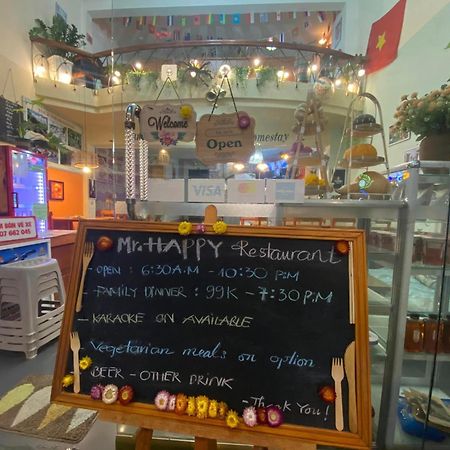 Welcome
Open
omestay
VISA
Mr. HAPPY Restaurant
- OPEN : 6:30 A.M - 10:30 P.M
- FAMILY DINNER : 99K - 7:30 P.M
- KARAOKE ON AVAILABLE
Vegetarian meals on option
BEER - OTHER DRINK
- Thank You!